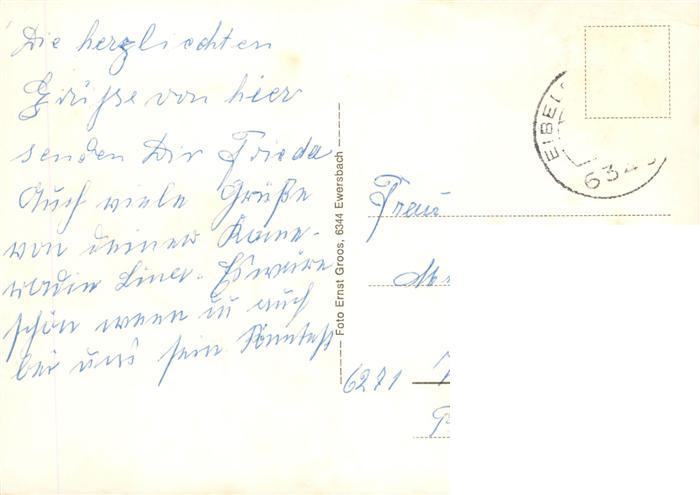 Die herzlichten
Grüße von hier
senden Dir Frieda
Auch viele Grüße
von deiner Kame-
radin Lina. Es wäre
schön wenn du auch
bei uns sein könntest
Foto Ernst Groos, 6344 Ewersbach
EIBEL
634
Frau
6271